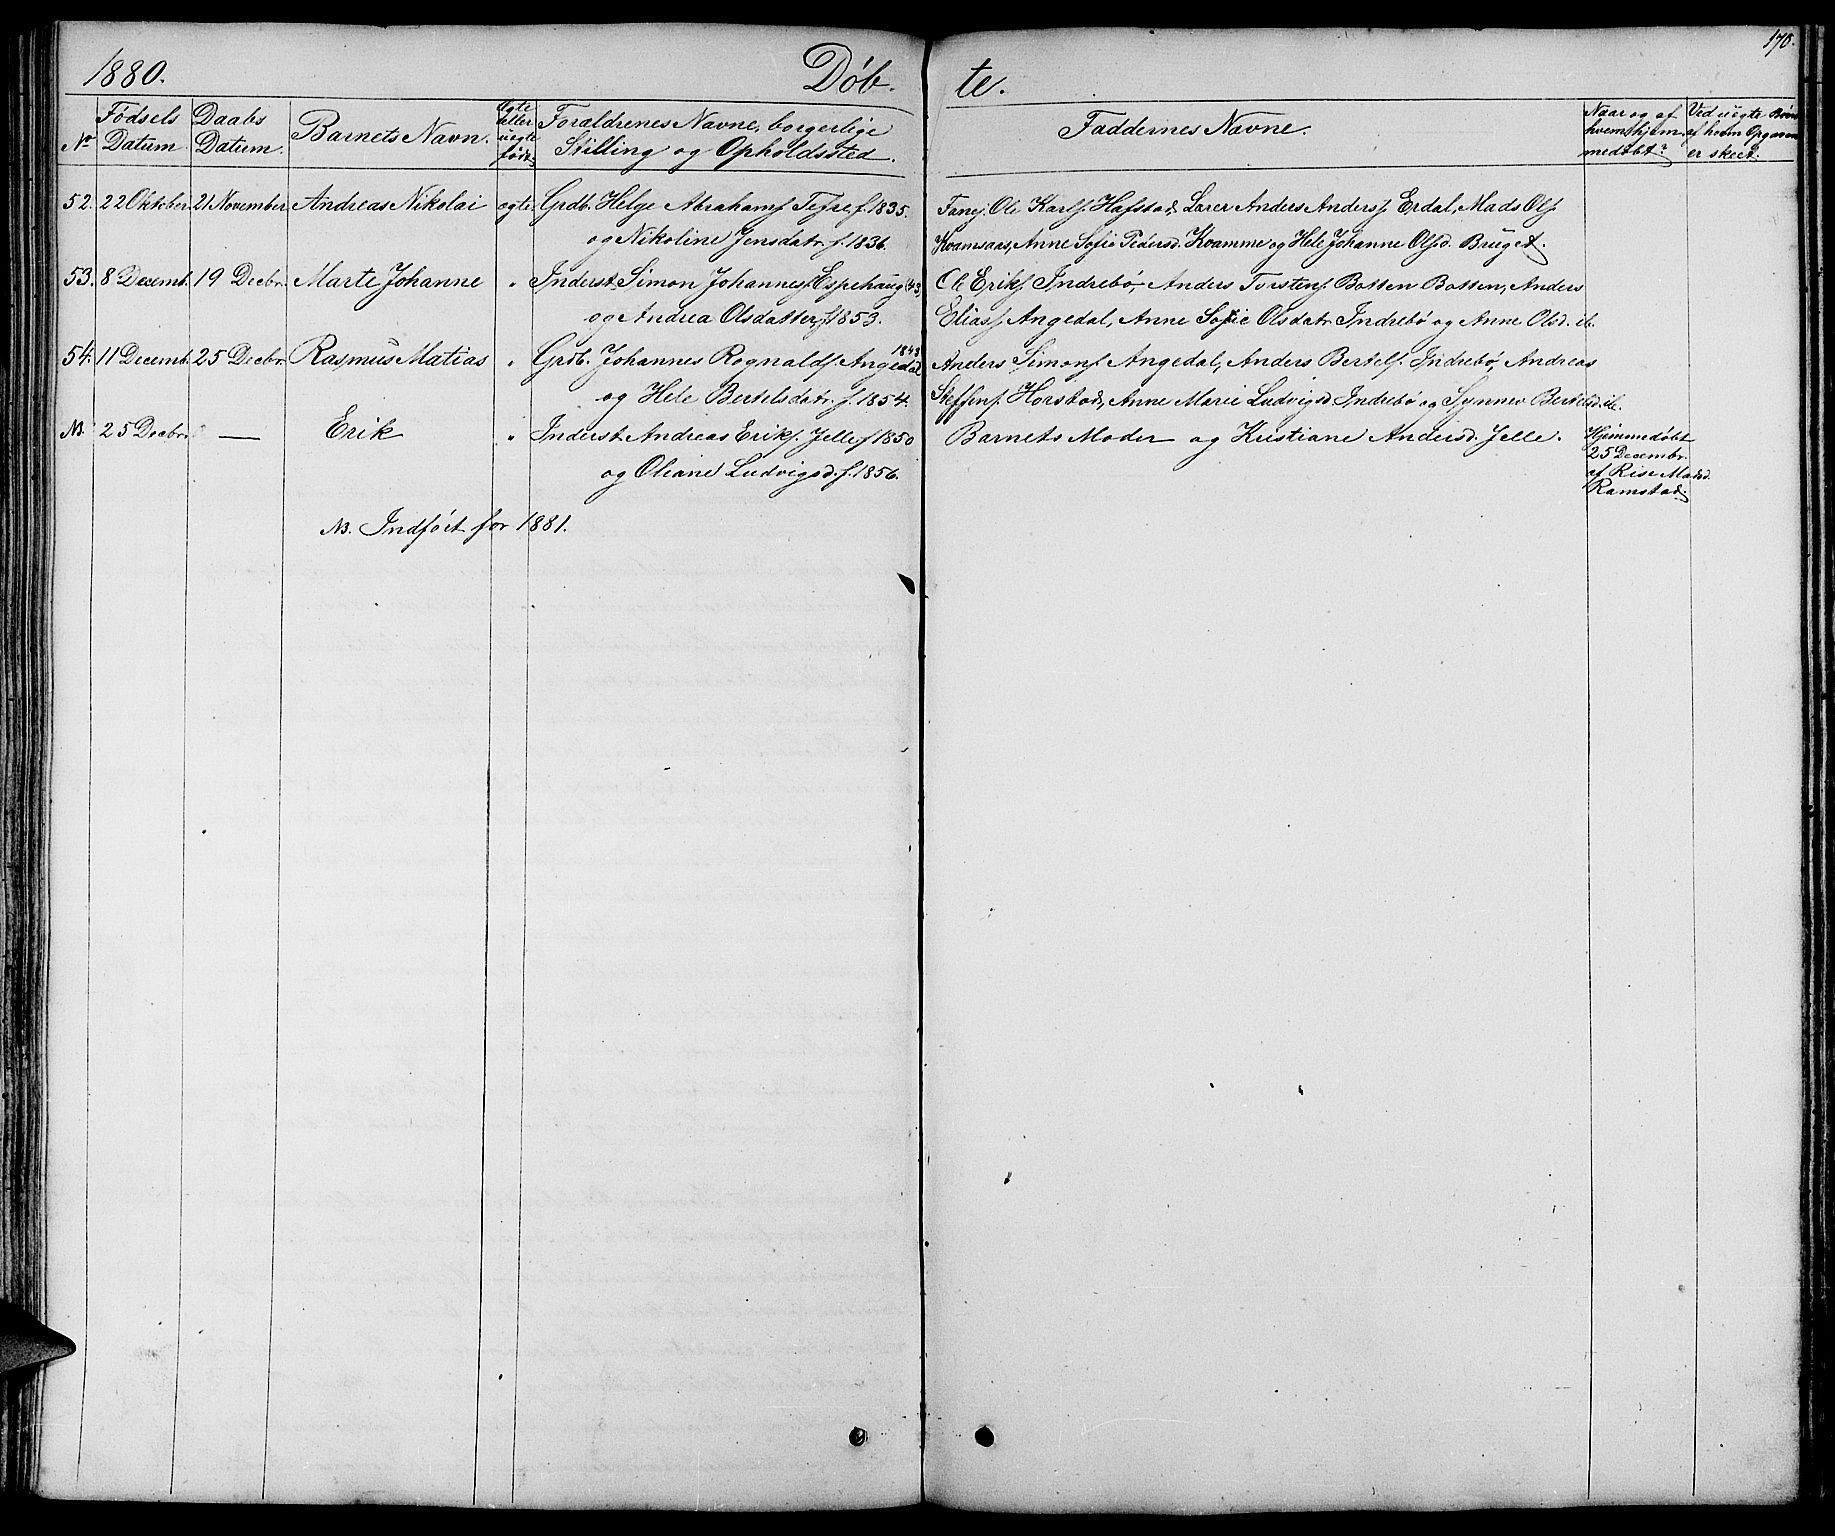 170.
1880. Døbte.
No Fødsels Datum Daabs Datum. Barnets Navn. Ægte eller uægte født Forældrenes Navne, borgerlige Stilling og Opholdssted. Faddernes Navne. Naar og af hvem hjemmedøbt? Ved uægte Børn af hvem Opgaven er skeet.
52. 22 Oktober 21 November Andreas Nikolai ægte Grdb. Helge Abrahams. Tefre f. 1835. Ole Karls. Hafstad, Lærer Anders Anders. Erdal, Mads Ols.
og Nikoline Jensdatr. f. 1836. Kvamsaas, Anne Sofie Pedersd. Kvamme og Hele Johanne Olsd. Bruget.
53. 8 Decemb. 19 Decbr. Marte Johanne " Inderst. Simon Johannes. Espehaug (43) Ole Eriks. Indrebø, Anders Torstens. Botten Botten, Anders
og Andrea Olsdatter f. 1853. Elias. Angedal, Anne Sofie Olsdatr. Indrebø og Anne Olsd. ib.
54. 11 Decemb. 25 Decbr. Rasmus Matias " Grdb. Johannes Rognalds. Angedal 1848 Anders Simons. Angedal, Anders Bertels. Indrebø, Andreas
og Hele Bertelsdatr. f. 1854. Steffens. Horstad, Anne Marie Ludvigsd. Indrebø og Synnev Bertelsd. ib.
NB. 25 Decbr. — Erik " Inderst. Andreas Eriks. Jelle f 1850 Barnets Moder og Kristiane Andersd. Jelle. Hjemmedøbt
25 Decembr.
og Oliane Ludvigsd. f. 1856. af Rise Madsd.
Ramstad
NB. Indført for 1881.